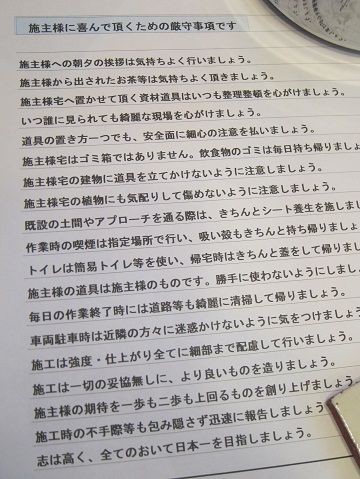 施主様に喜んで頂くための厳守事項です
施主様への朝夕の挨拶は気持ちよく行いましょう。
施主様から出されたお茶等は気持ちよく頂きましょう。
施主様宅へ置かせて頂く資材道具はいつも整理整頓を心がけましょう。
いつ誰に見られても綺麗な現場を心がけましょう。
道具の置き方一つでも、安全面に細心の注意を払いましょう。
施主様宅はゴミ箱ではありません。飲食物のゴミは毎日持ち帰りましょ
施主様宅の建物に道具を立てかけないように注意しましょう。
施主様宅の植物にも気配りして傷めないように注意しましょう。
既設の土間やアプローチを通る際は、きちんとシート養生を施しま
作業時の喫煙は指定場所で行い、吸い殻もきちんと持ち帰りましょ
トイレは簡易トイレ等を使い、帰宅時はきちんと蓋をして帰りまし
施主様の道具は施主様のものです。勝手に使わないようにしましょ
毎日の作業終了時には道路等も綺麗に清掃して帰りましょう。
車両駐車時は近隣の方々に迷惑かけないように気をつけましょう
施工は強度・仕上がり全てに細部まで配慮して行いましょう。
施工は一切の妥協無しに、より良いものを造りましょう。
施主様の期待を一歩も二歩も上回るものを創り上げましょう
施工時の不手際等も包み隠さず迅速に報告しましょう。
志は高く、全てのおいて日本一を目指しましょう。